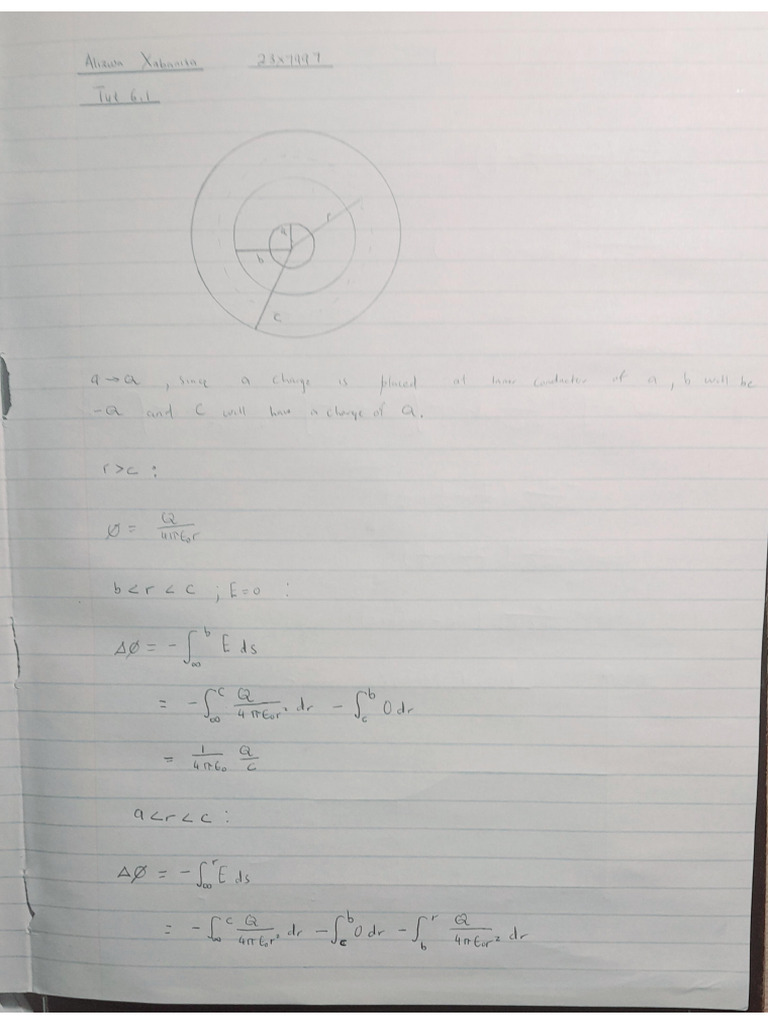 Tut 6.1
a
r
b
c
q → Q , since a charge is placed at inner conductor of a, b will be
-Q and C will have a charge of Q.
r > c :
Ø = Q / 4πε₀r
b < r < c ; E = 0 :
ΔØ = - ∫_∞^b E ds
= - ∫_∞^c Q / 4πε₀r² dr - ∫_c^b 0 dr
= 1 / 4πε₀ Q / c
a < r < c :
ΔØ = - ∫_∞^r E ds
= - ∫_∞^c Q / 4πε₀r² dr - ∫_c^b 0 dr - ∫_b^r Q / 4πε₀r² dr